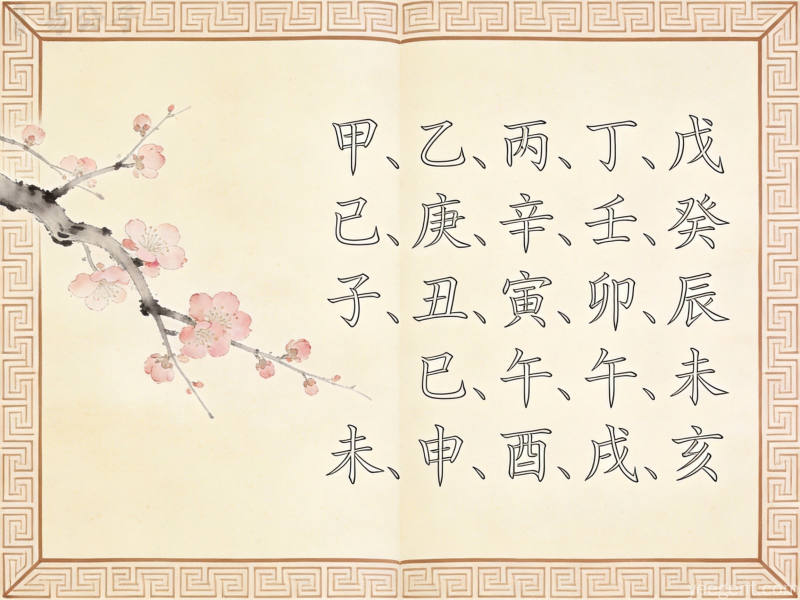 甲、乙、丙、丁、戊
己、庚、辛、壬、癸
子、丑、寅、卯、辰
巳、午、午、未
未、申、酉、戌、亥